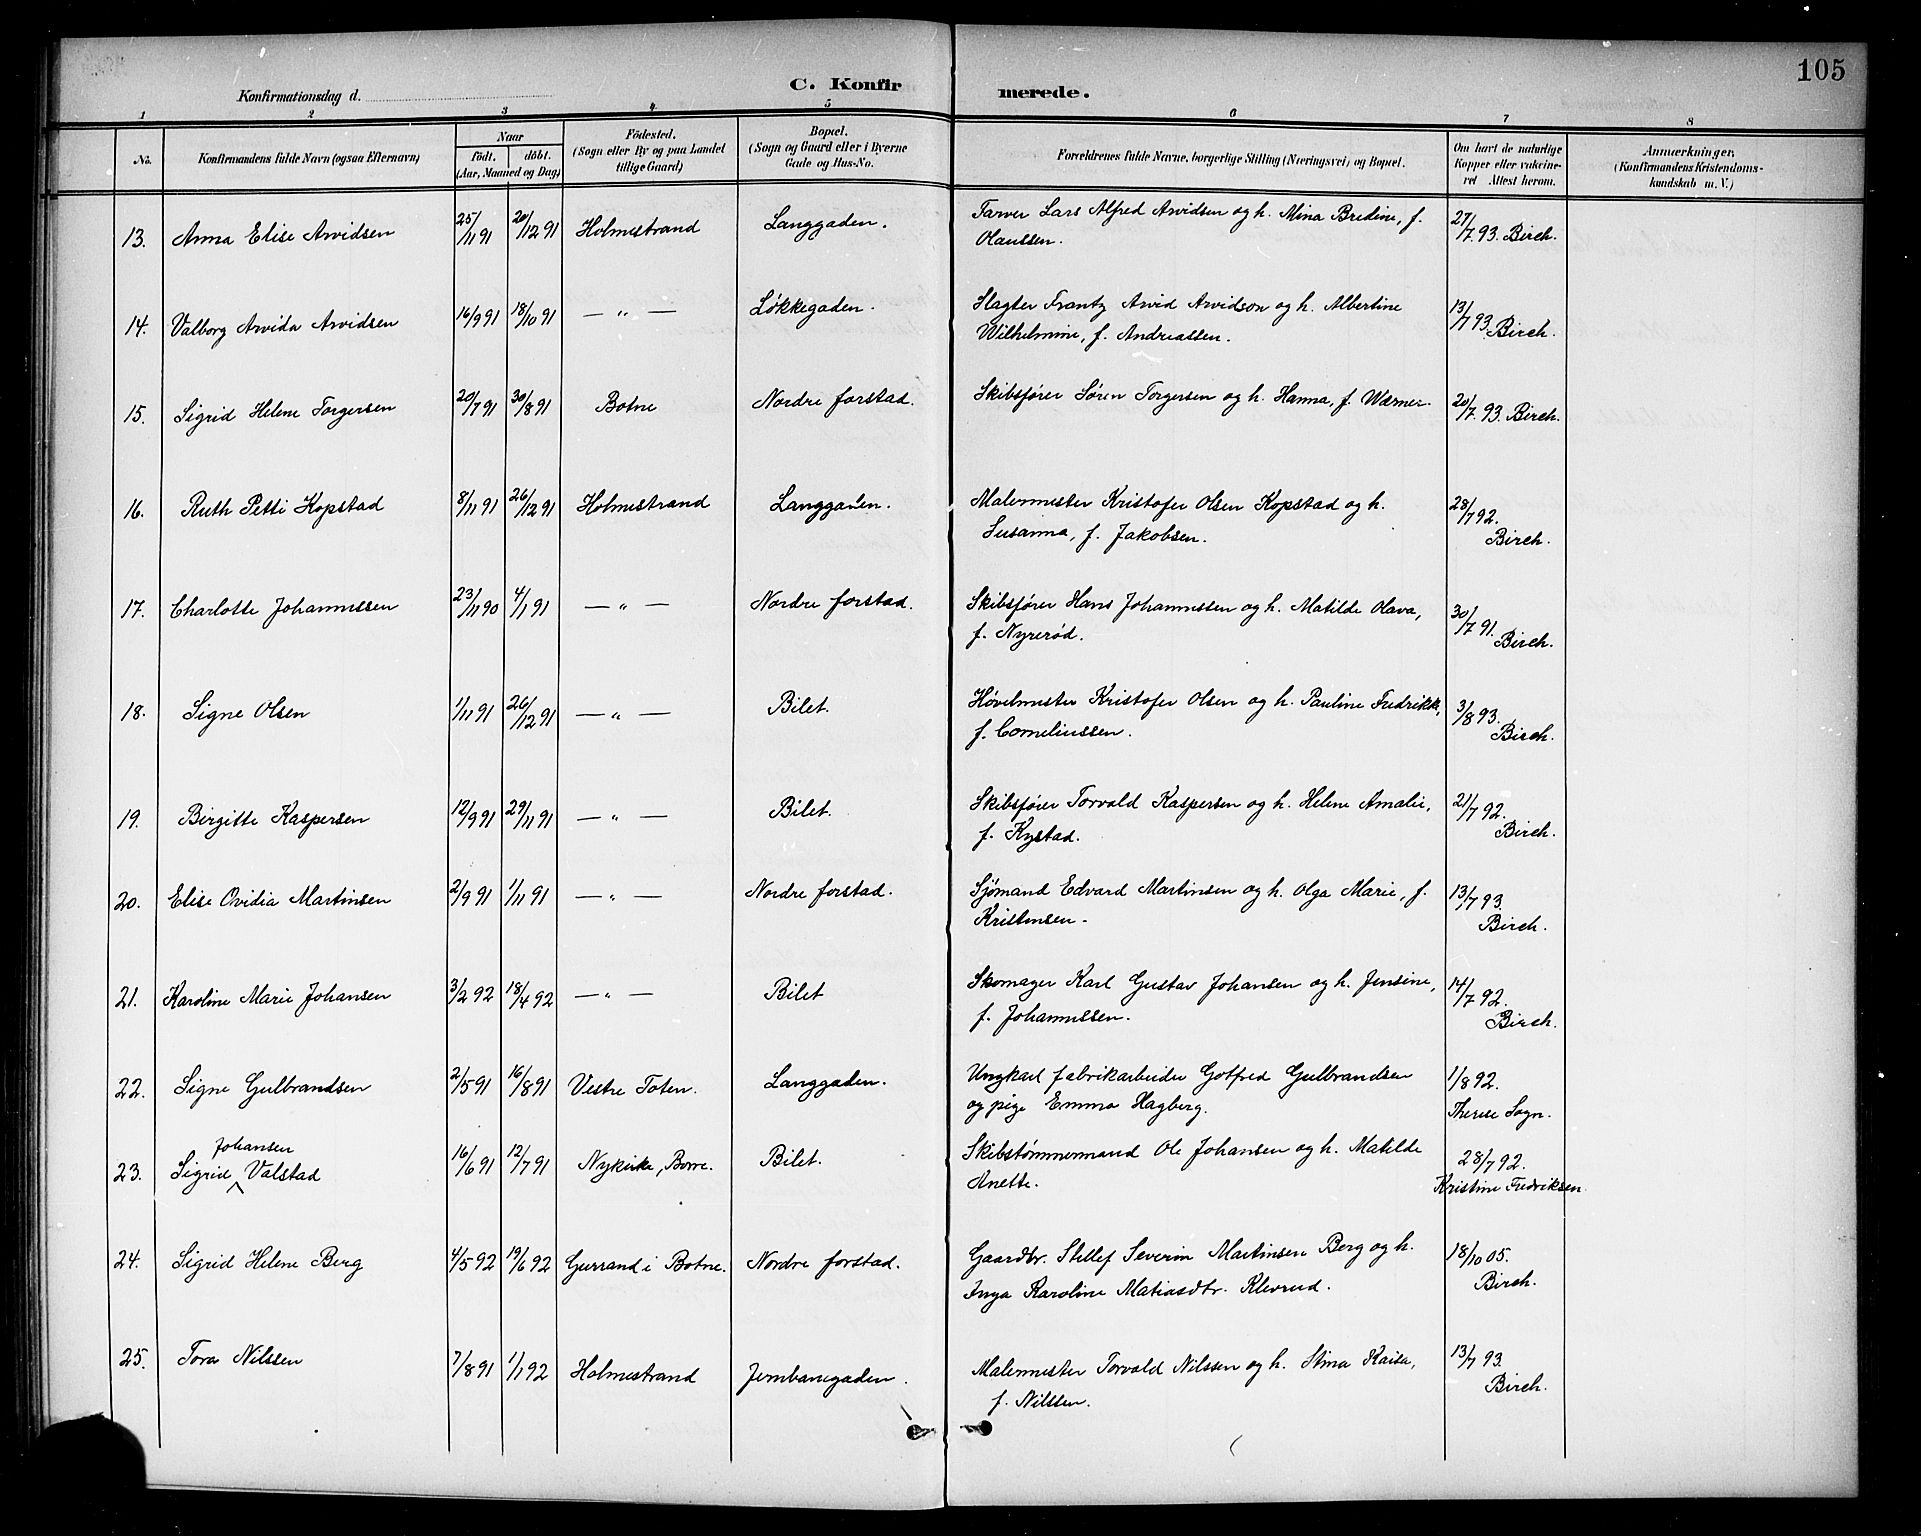 105
C. Konfirmerede.
Konfirmationsdag d.
1 2 3 4 5 6 7 8
No. Konfirmandens fulde Navn (ogsaa Efternavn) Naar födt. döbt. (Aar, Maaned og Dag) Födested. (Sogn eller By og paa Landet tillige Gaard) Bopæl. (Sogn og Gaard eller i Byerne Gade og Hus-No. Forældrenes fulde Navne, borgerlige Stilling (Næringsvei) og Bopæl. Om havt de naturlige Kopper eller vakcineret Attest herom. Anmærkninger. (Konfirmandens Kristendomskundskab m. V.)
13. Anna Elise Arvidsen 25/11 91 20/12 91 Holmestrand Langgaden. Farver Lars Alfred Arvidsen og h. Mina Bredine, f. 27/7. 93. Birch.
Olaussen.
14. Valborg Arvida Arvidsen 16/9 91 18/10 91 — " — Løkkegaden. Slagter Frantz Arvid Arvidson og h. Albertine 13/7 93. Birch.
Wilhelmine, f. Andreassen.
15. Sigrid Helene Torgersen 20/7 91 30/8 91 Botne Nordre forstad. Skibsfører Søren Torgersen og h. Hanna, f. Wærner. 20/7. 93. Birch.
16. Ruth Petti Kopstad 8/11 91 26/12 91 Holmestrand Langgaden. Malermester Kristofer Olsen Kopstad og h. 28/7 92.
Susanna, f. Jakobsen. Birch.
17. Charlotte Johannessen 23/11 90 4/1 91 — " — Nordre forstad. Skibsfører Hans Johannessen og h. Matilde Olava, 30/7 91.
f. Nyrerød. Birch.
18. Signe Olsen 1/11 91 26/12 91 — " — Bilet. Høvelmester Kristofer Olsen og h. Pauline Fredrikke, 3/8 93.
f. Corneliussen. Birch.
19. Birgitte Kaspersen 12/9 91 29/11 91 — " — Bilet. Skibsfører Torvald Kaspersen og h. Helene Amalie, 21/7 92.
f. Kystad. Birch.
20. Elise Ovidia Martinsen 2/9 91 1/11 91 — " — Nordre forstad. Sjømand Edvard Martinsen og h. Olga Marie, f. 13/7 93.
Kristensen. Birch.
21. Karoline Marie Johansen 3/2 92 18/4 92 — " — Bilet Skomager Karl Gustav Johansen og h. Jensine, 14/7 92.
f. Johannessen. Birch.
22. Signe Gulbrandsen 2/5 91 16/8 91 Vestre Toten. Langgaden. Ungkarl fabrikarbeider Gotfred Gulbrandsen 1/8 92.
og pige Emma Hagberg. Therese Sogn.
Johansen
23. Sigrid Valstad 16/6 91 12/7 91 Nykirke, Borre. Bilet. Skibstømmermand Ole Johansen og h. Matilde 28/7 92.
Anette. Kristine Fredriksen
24. Sigrid Helene Berg 4/5 92 19/6 92 Gurrand i Botne. Nordre forstad. Gaardbr. Stillef Severin Martinsen Berg og h. 18/10 05.
Inga Karoline Matiasdtr. Klevrud. Birch.
25. Tora Nilssen 7/8 91 1/1 92 Holmestrand Jernbanegaden. Malermester Torvald Nilssen og h. Stina Kaisa, 13/7 93.
f. Nilssen. Birch.